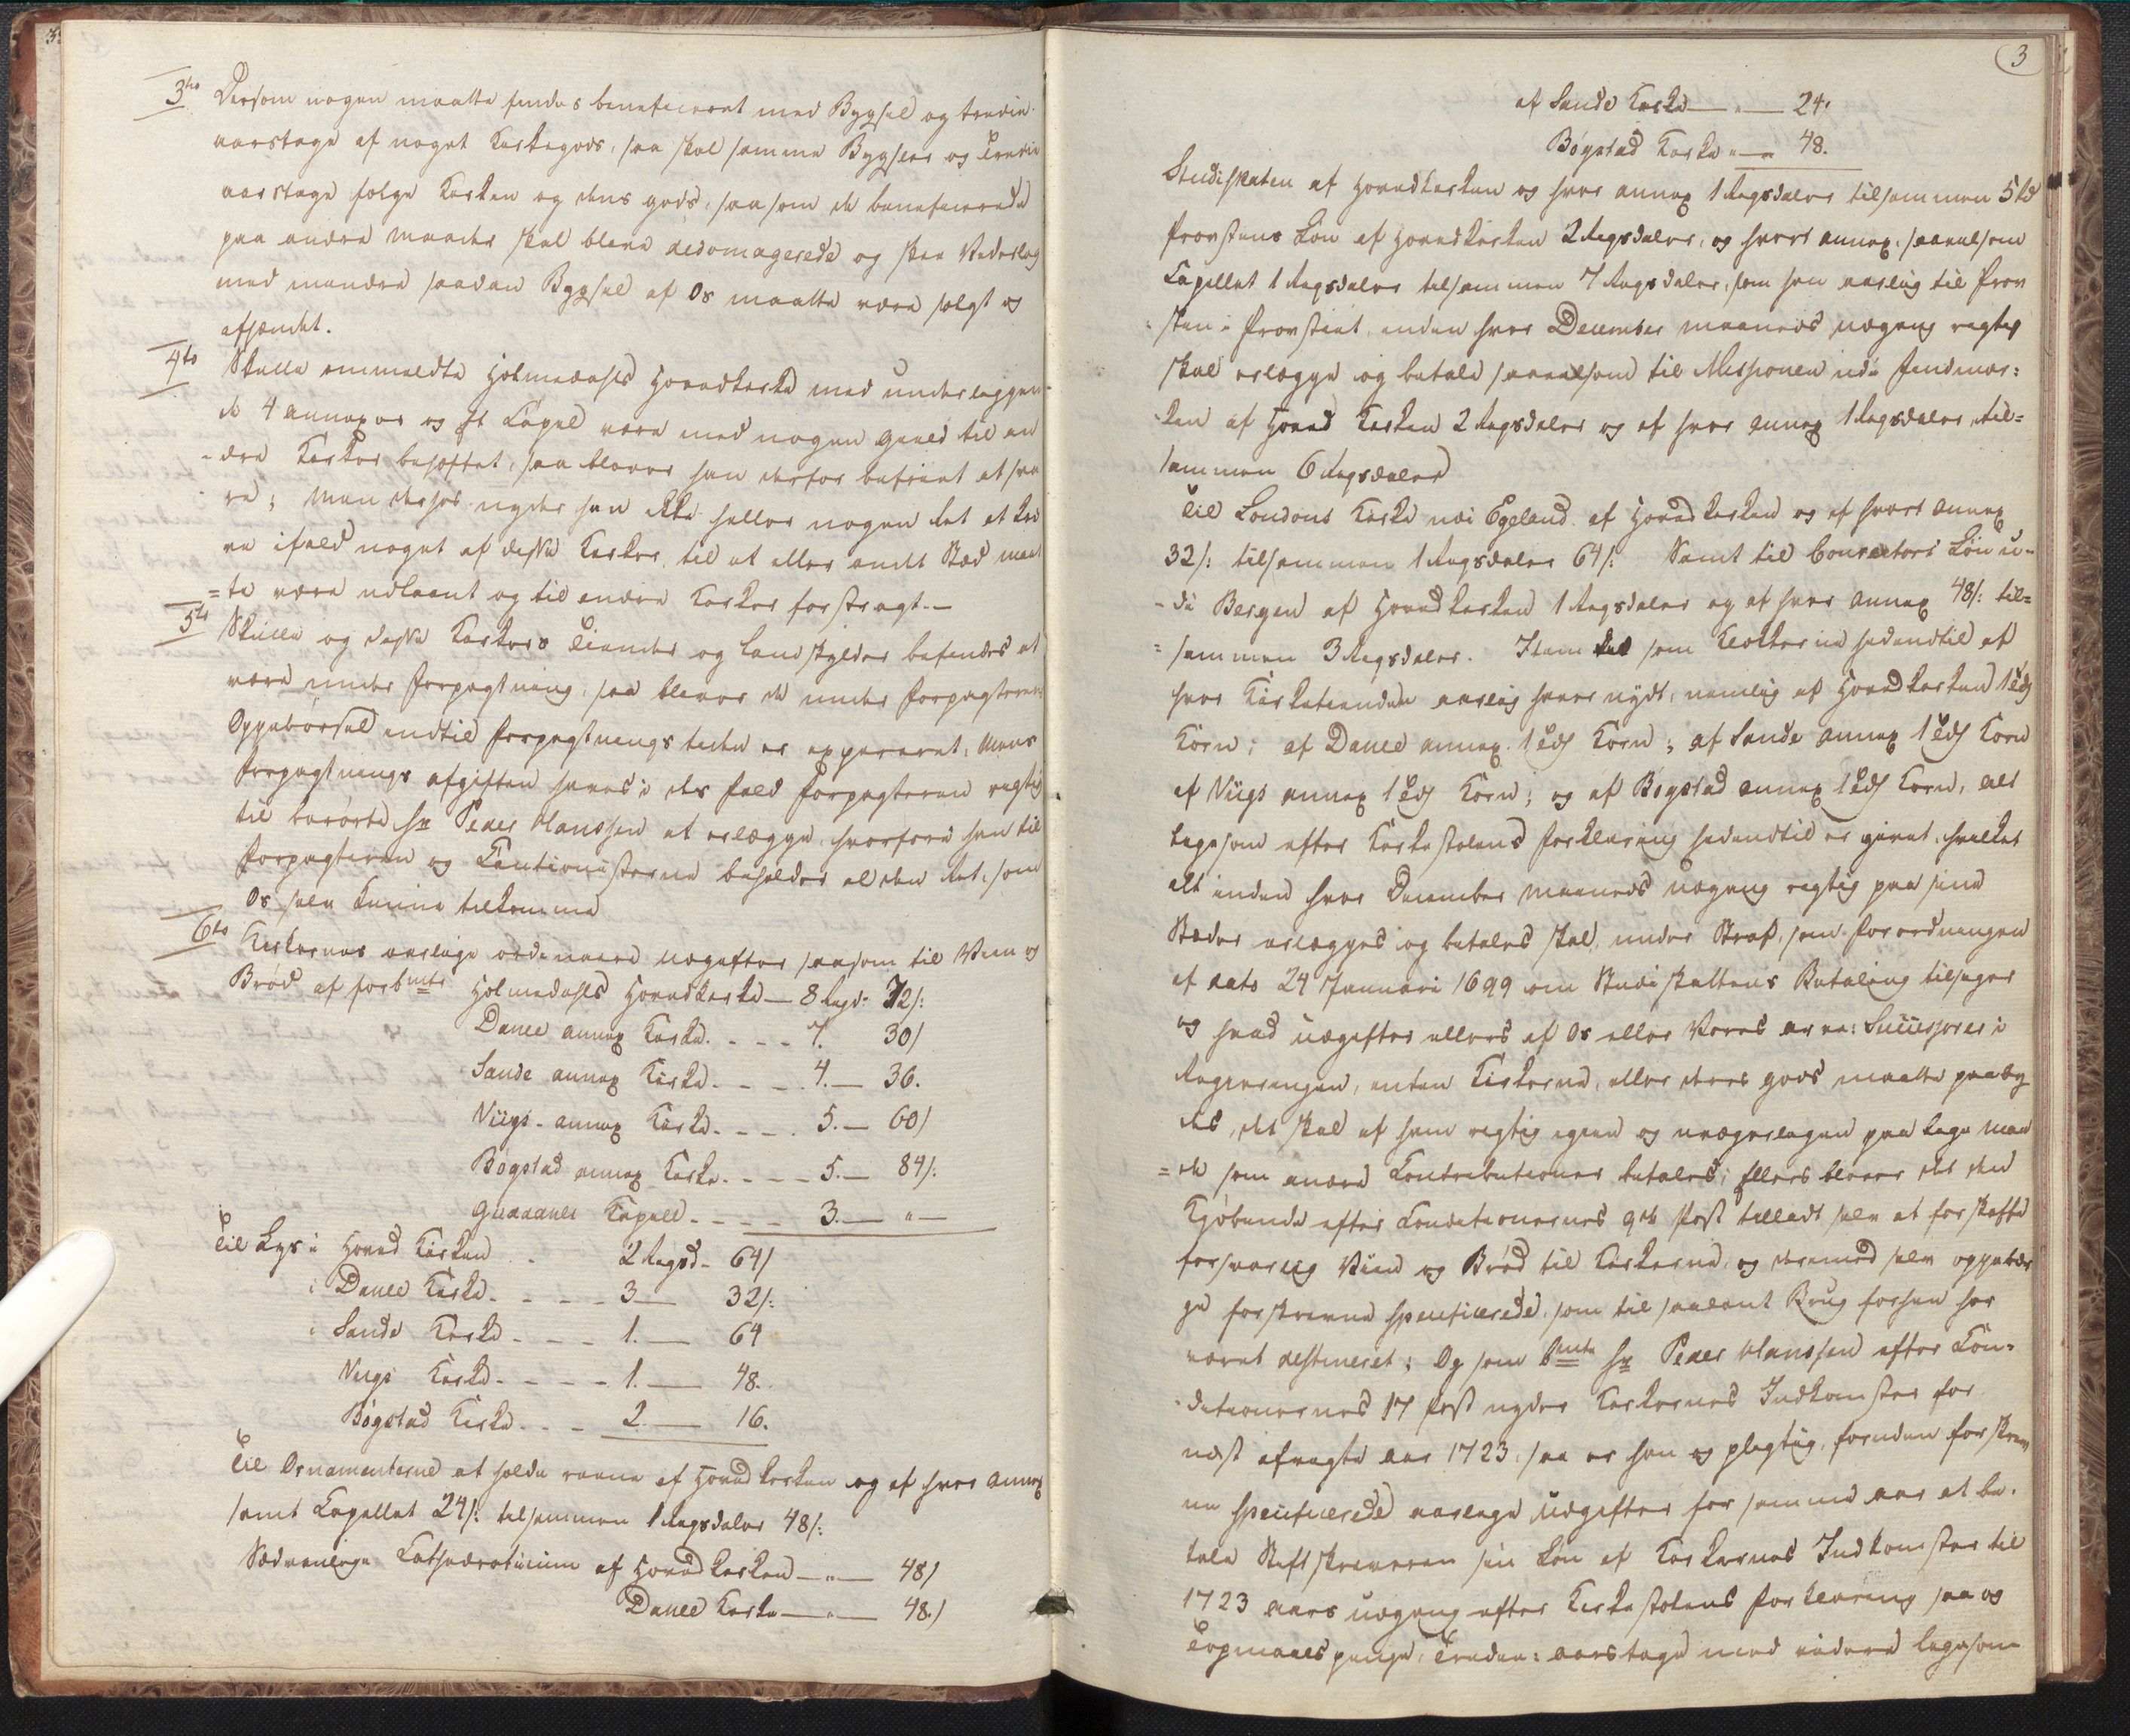 3tio Dersom nogen maatte findes beneficeret med Bygsel og tredie
aarstage af noget Kirkegods, saa skal samme Bygseler og tredie
aarstage følge Kirken og dens gods, saasom de beneficerede
paa andre maader skal blive dedomagerede og skee Vederlag
med mindre saadan Bygsel af Os maatte være solgt og
afhændet.
4to Skulle ommeldte Holmedahls Hovedkirke med underliggen
de 4 annexer og et Capel være med nogen gield til an
-dre Kirker behæftet, saa bliver han derfor befriet at sva
re; Men derhos nyder han ikke heller nogen Ret at kræ
ve ifald noget af disse Kirker, til et eller andet Stæd maat
=te være udlaant og til andre Kirker forstragt.—
5to Skulle og disse Kirkers Tiender og Landskylder befindes at
være under forpagtning, saa bliver de under forpagterens
Oppebørsel indtil forpagtnings tiden er expireret, Mens
forpagtnings afgiften haves i det fald forpagteren rigtig
til berørte Hr Peder Hanssen at erlægge, hvorfore han til
forpagteren og Cautionisterne beholder al den Ret, som
Os selv kunne tilkomme
6to Kirkernes aarlige ordinaire udgifter saasom til Viin og
Brød af forbmte Holmedahls Hovedkirke — 8 Rigsd: 72/:
Dahle annex Kirke. - - - 7. 30/
Sande annex Kirke. - - - 4.— 36.
Viigs - annex Kirke. - - - 5.— 60/
Bøgstad annex Kirke. - - - 5.— 84/:
Capell. - - - - 3.— " —
Til Lys i Hoved Kirken - 2 Rigsd - 64/
i Dahle Kirke. - - - - 3 — 32/:
i Sande Kirke - - - 1.— 64
Viigs Kirke. - - - - 1.— 48.
Bøgstad Kirke. - - - 2.— 16.
Til Ornamenterne at holde reene af Hovedkirken og af hver annex
samt Capellet 24/: tilsammen 1 Rigsdaler 48/:
Sædvanlige Cathedraticum af Hovedkirken — " — 48/
Dahle Kirke — " — 48./
3
af Sande Kirke — " — 24/
Bøgstad Kirke " — " 48.
Studiskatten af Hovedkirken og hver annex 1 Rigsdaler tilsammen 5 Rd
Provstens Løn af Hovedkirken 2 Rigsdaler, og hvert annex, saavelsom
Capellet 1 Rigsdaler tilsammen 7 Rigsdaler, som han aarlig til Prov
sten i Provstiet, inden hver December maaneds udgang rigtig
skal erlægge og betale saavelsom til Missionen udi findmar:
ken af Hoved Kirken 2 Rigsdaler og af hver annex 1 Rigsdaler, til=
sammen 6 Rigsdaler
Til Londons Kirke udi Egeland af Hovedkirken og af hvert annex
32/: tilsammen 1 Rigsdaler 64/: Samt til Conrectors Løn u-
-di Bergen af Hovedkirken 1 Rigsdaler og af hver annex 48/: til=
=sammen 3 Rigsdaler. Item det som Klokkerne hidindtil af
hver Kirketiende aarlig haver nydt, nemlig af Hovedkirken 1 Tdh
Korn; af Dahle annex 1 Tdh Korn; af Sande annex 1 Tdh Korn
af Viigs annex 1 Tdh Korn; og af Bøgstad annex 1 Tdh Korn, alt
ligesom efter Kirkestolens forklaring hidindtil er givet, hvilket
alt inden hver December maaneds udgang rigtig paa sine
Stæder erlægges og betales skal, under Straf, som forordningen
af dato 24 Januari 1699 om Studiskattens Betaling tilsiger
og hvad udgifter ellers af Os eller Vores arve: Successorer i
Regieringen, enten Kirkerne, eller deres gods maatte paaby
des, det skal af ham rigtig og uvægerligen paa lige maa
=de som andre Contributioner betales; Ellers bliver det den
Kjøbende efter Conditionernes 9de Post tilladt selv at forskaffe
forsvarlig Viin og Brød til Kirkerne, og derimod selv oppebær
ge forskrevne specificerede, som til saadant Brug forhen har
været destineret; Og som bmte Hr Peder Hanssen efter Con-
-ditionernes 17 Post nyder Kirkernes Indkomster for
næst afvigte aar 1723, saa er han og pligtig, foruden forskrev
ne specificerede aarlige Udgifter for samme aar at be-
tale Stiftskriveren sin Løn af Kirkernes Indkomster til
1723 aars udgang efter Kirkestolens forklaring saa og
penge, Tredie: aarstage med videre ligesom